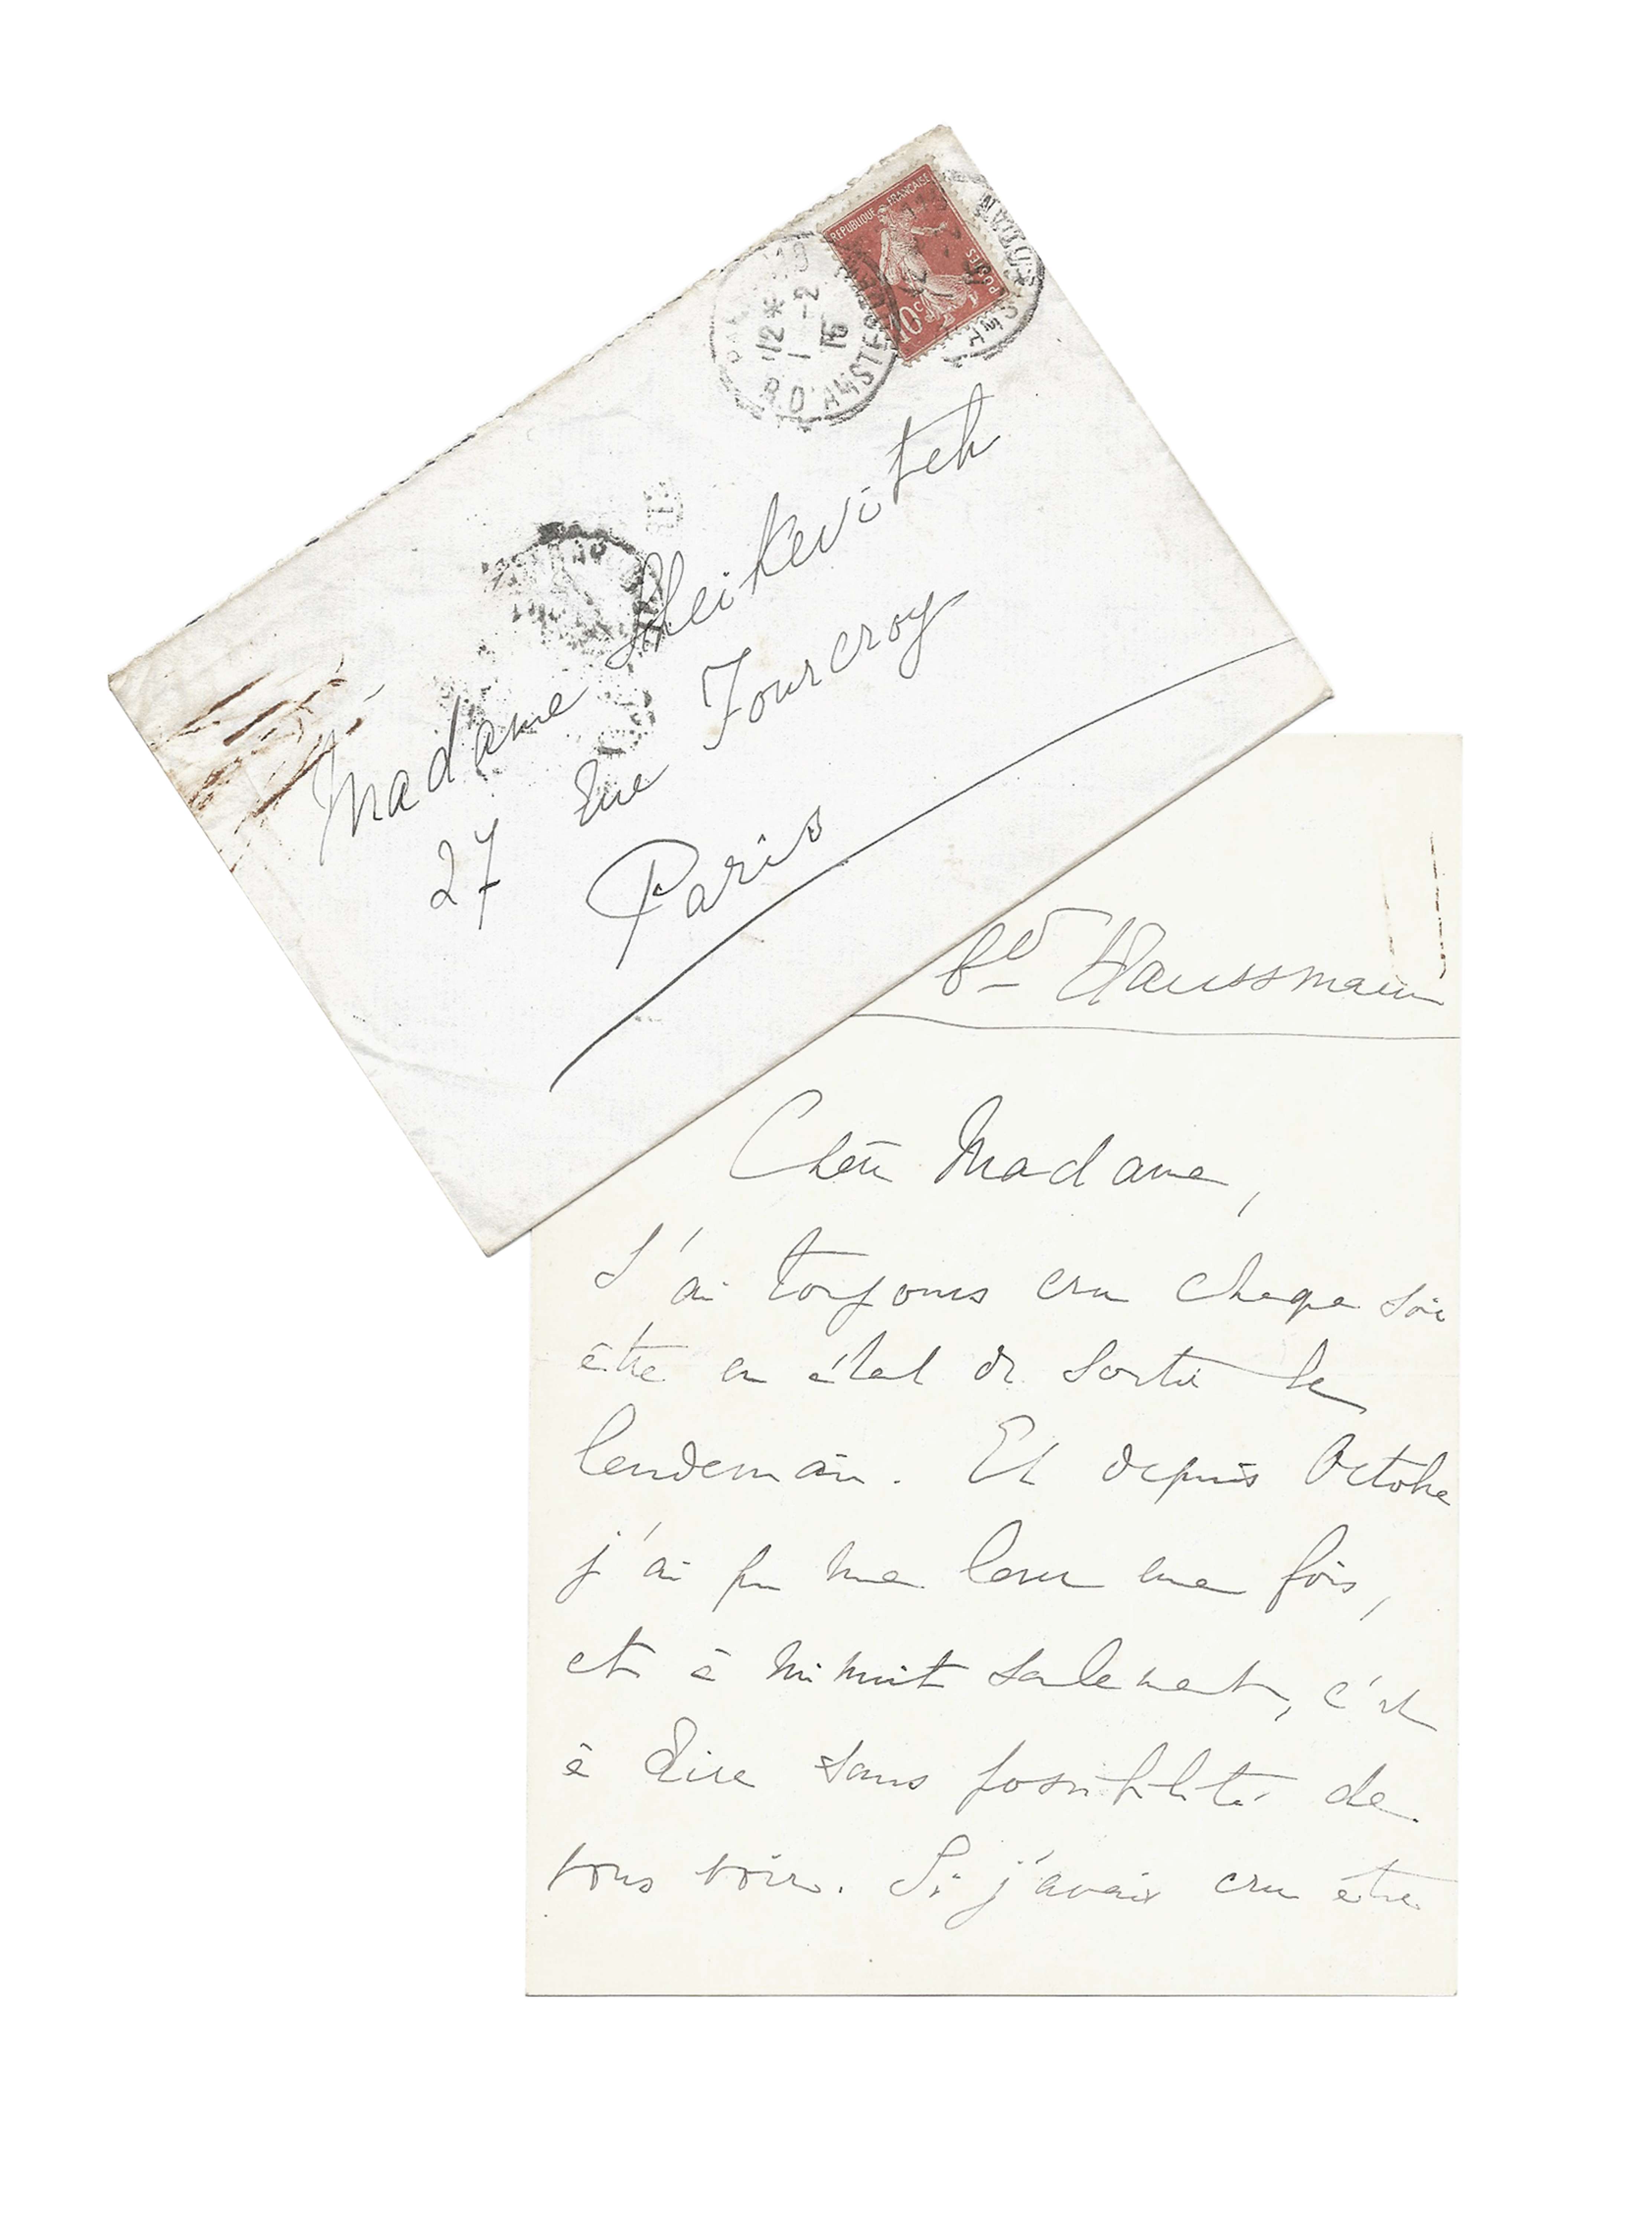 REPUBLIQUE FRANÇAISE
POSTES
10c
12* 
1 -2
15
R. D'AMSTERDAM
Madame Scheikevitch
27 rue Fourcroy
Paris
bd Haussmann
Chère Madame,
J'ai toujours cru chaque soir
être en état de sortir le
lendemain. Et depuis Octobre
j'ai pu me lever une fois,
et à minuit seulement, c'est
à dire sans possibilité de
vous voir. Si j'avais cru être